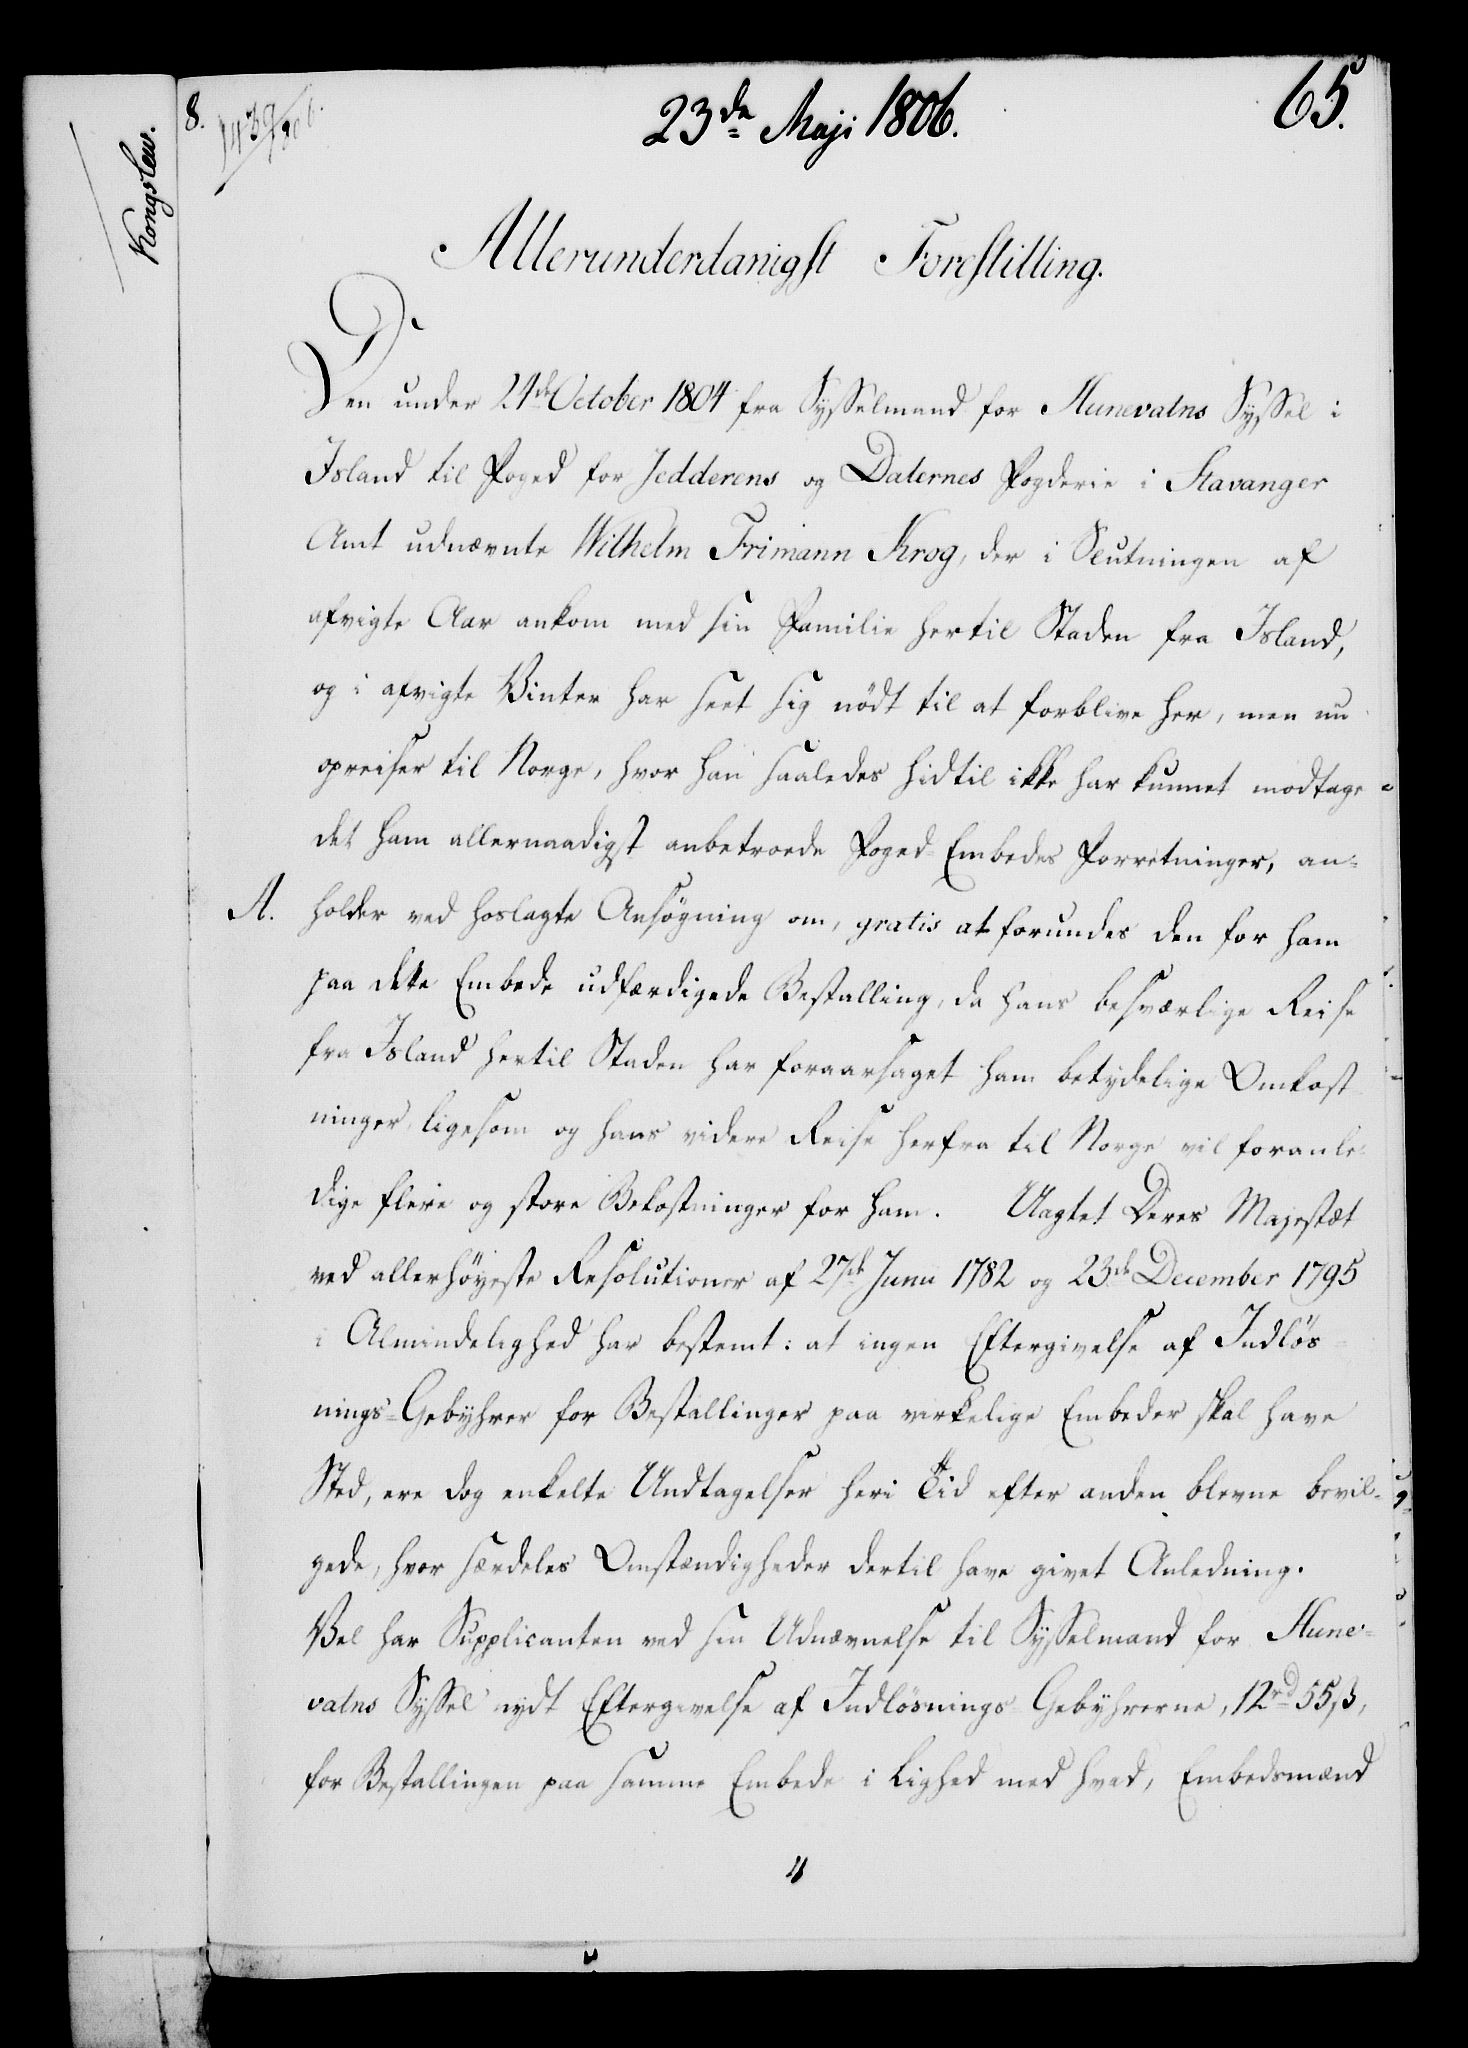 8.
1439/806.
23de Maji 1806.
65.
Kongslew.
Allerunderdanigst Forestilling.
Den under 24de October 1804 fra Sysselmand for Hunevatns Syssel i
Island til Foged for Jedderens og Dalernes Fogderie i Stavanger
Amt udnævnte Wilhelm Frimann Krog, der i Slutningen af
afvigte Aar ankom med sin Familie hertil Staden fra Island,
og i afvigte Vinter har seet sig nödt til at forblive her, men nu
opreiser til Norge, hvor han saaledes hidtil ikke har kunnet modtage
det ham allernaadigst anbetroede Foged-Embedes Forretninger, an=
A. holder ved hoslagte Ansögning om, gratis at forundes den for ham
paa dette Embede udfærdigede Bestalling, da hans besværlige Reise
fra Island hertil Staden har foraarsaget ham betydelige Omkost
ninger, ligesom og hans videre Reise herfra til Norge vil foranle=
dige flere og store Bekostninger for ham. Uagtet Deres Majestæt
ved allerhöyeste Resolutioner af 27de Junii 1782 og 23de December 1795
i Almindelighed har bestemt: at ingen Eftergivelse af Indlös=
nings=Gebyhrer for Bestallinger paa virkelige Embeder skal have
Sted, ere dog enkelte Undtagelser heri Tid efter anden blevne bevil=
gede, hvor særdeles Omstændigheder dertil have givet Anledning.
Vel har Supplicanten ved sin Udnævnelse til Sysselmand for Hune=
vatns Syssel nydt Eftergivelse af Indlösnings Gebyhrerne, 12rd 55ß,
for Bestallingen paa samme Embede i Lighed med hvad, Embedsmænd